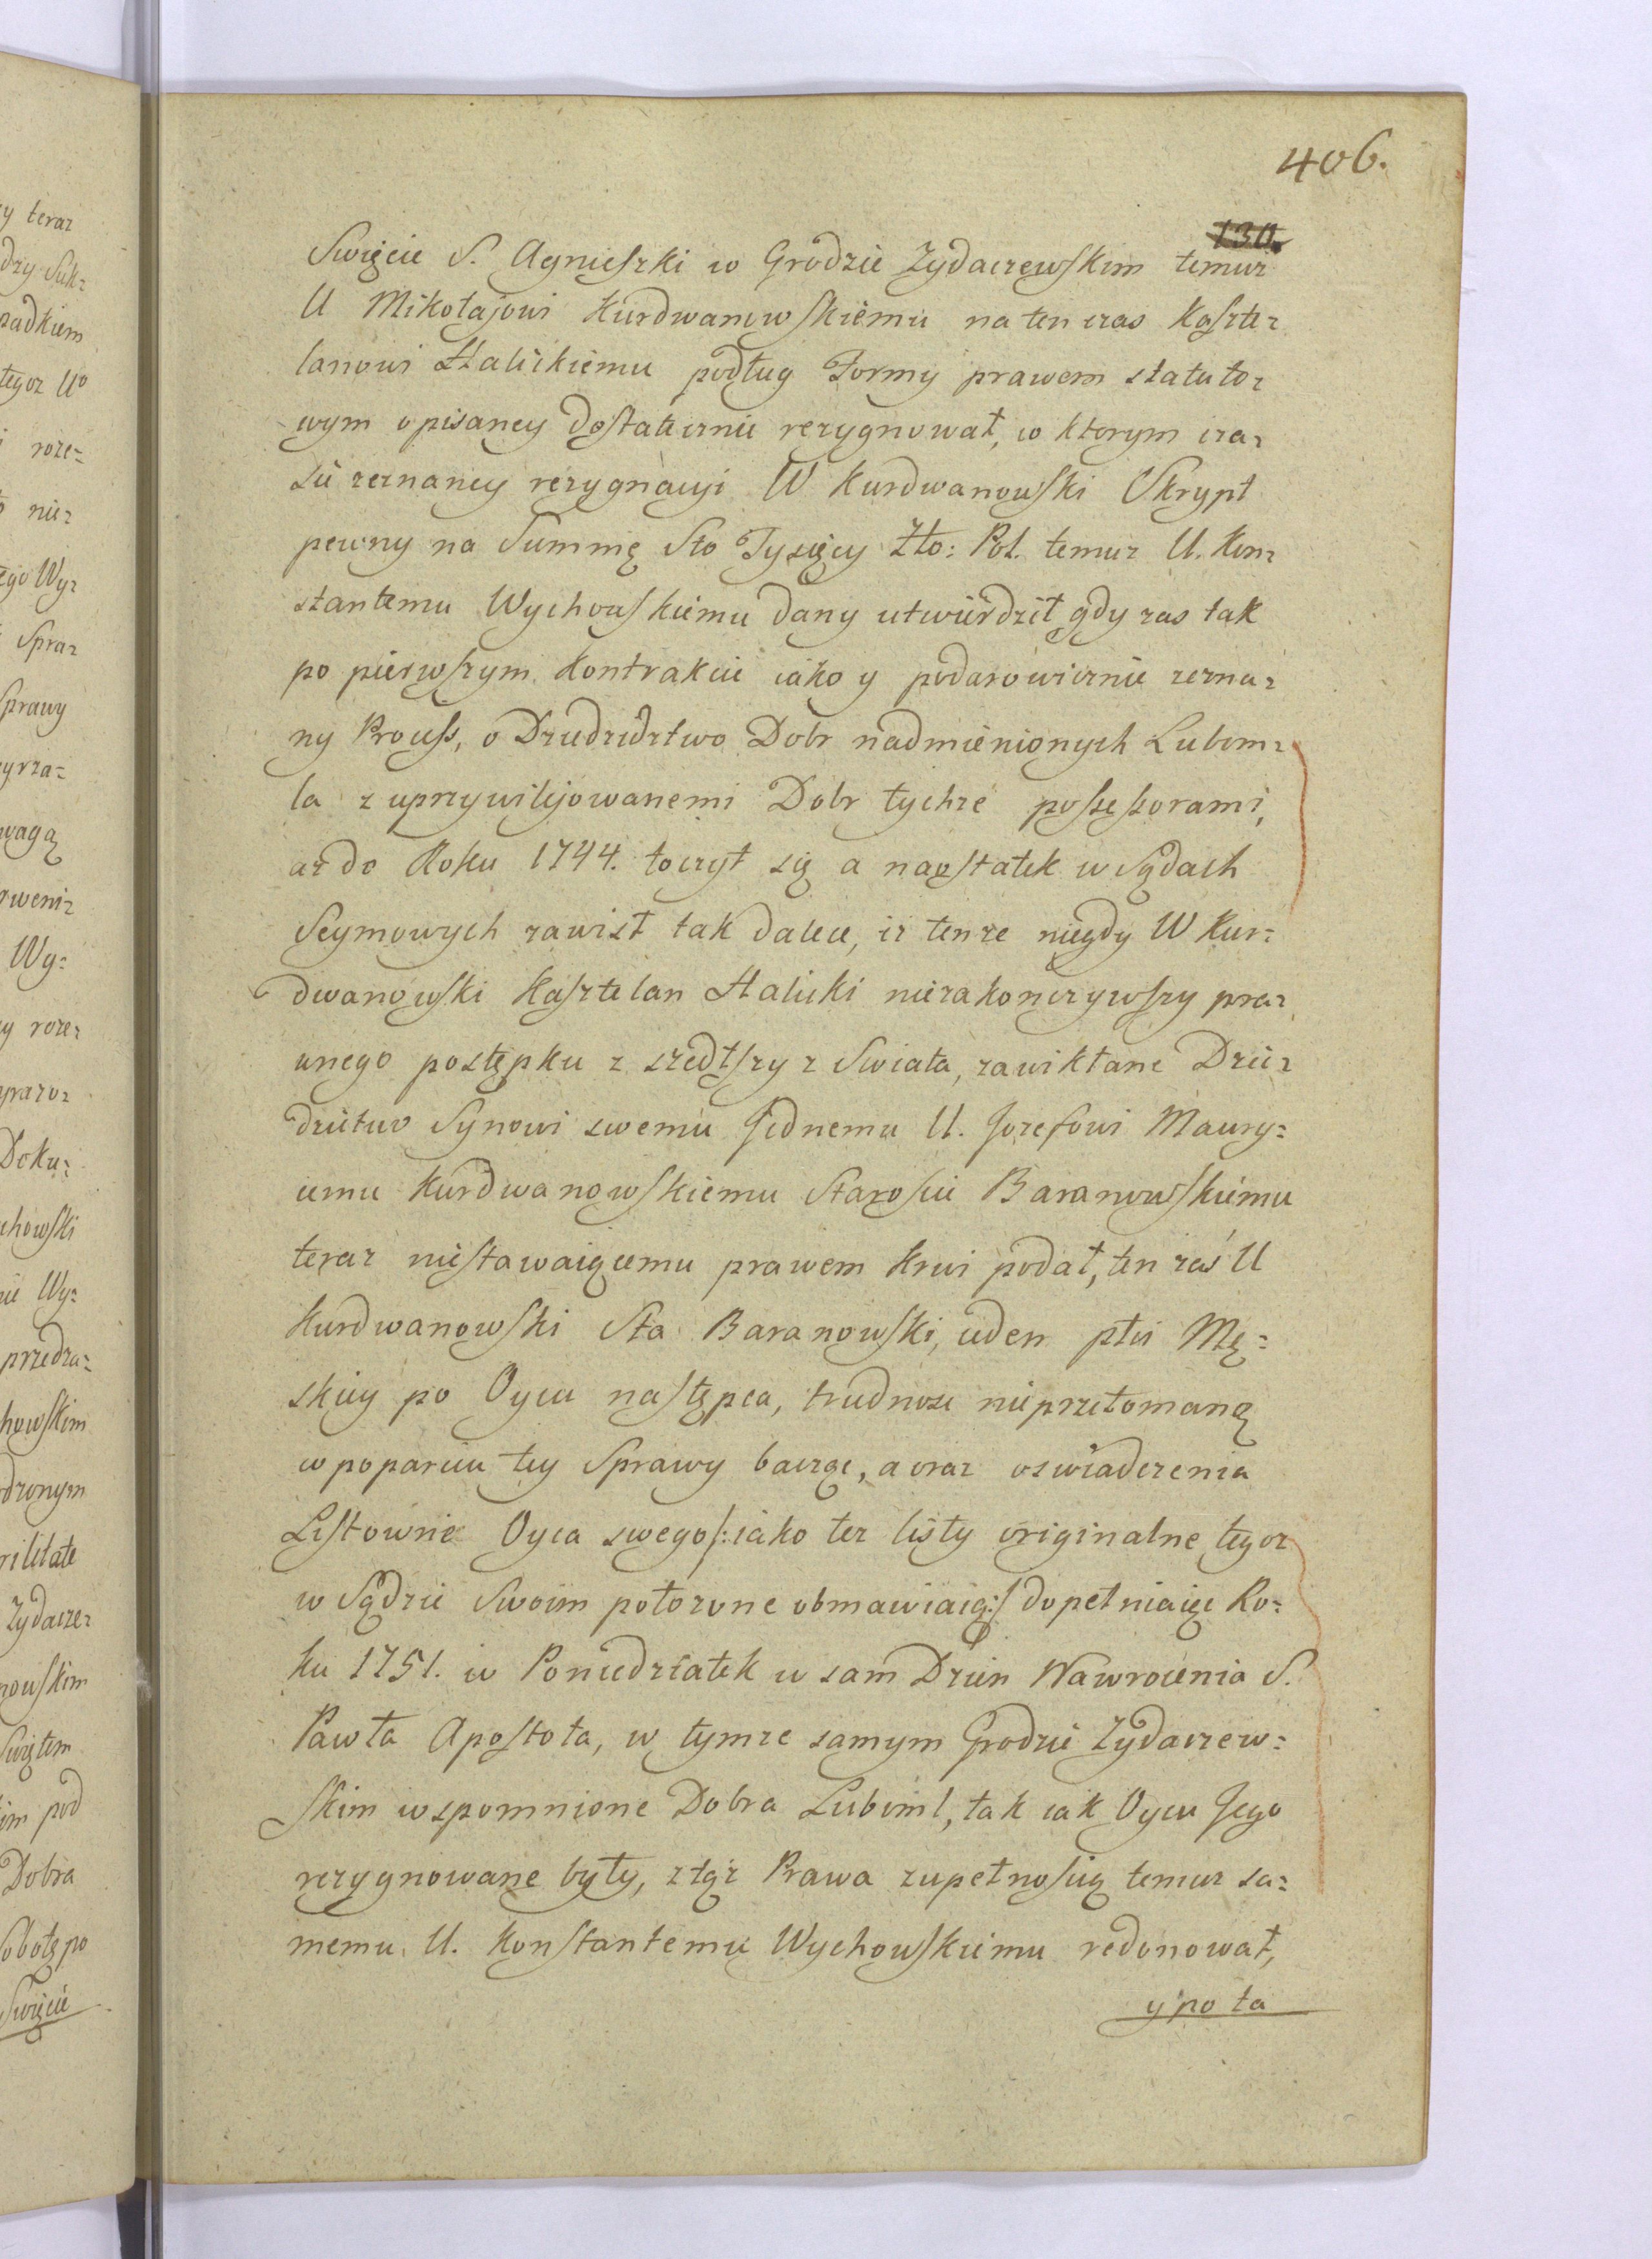 406.
130.
Swięcie S. Agnieszki w Grodzie Zydaczewskim temuz
U Mikołajowi Kurdwanowskiemu na ten czas Kaszte=
lanowi Halickiemu podług Formy prawem statuto=
wym opisaney dostatecznie rezygnował, w ktorym cza=
sie zeznaney rezygnacyi W Kurdwanowski Skrypt
pewny na Summę Sto Tysięcy Zło: Pol. temuz U. Kon=
stantemu Wychowskiemu dany utwierdził gdy zas tak
po pierwszym Kontrakcie iako y podarowiznie zezna=
ny Process, o Dziedzictwo Dobr nadmienionych Lubom=
la z uprzywilejowanemi Dobr tychże possessorami,
aż do Roku 1744. toczył się a naostatek w Sądach
Seymowych zawisł tak dalece, iz tenze niegdy W Kur=
dwanowski Kasztelan Halicki niezakonczywszy pra=
wnego postępku z szedłszy z Swiata, zawikłane Dzie=
dzictwo Synowi swemu Jednemu U. Jozefowi Maury=
cemu Kurdwanowskiemu Staroscie Baranowskiemu
teraz niestawaiącemu prawem Krwi podał, ten zaś U
Kurdwanowski Sta Baranowski, ieden płci Mę=
skiey po Oycu następca, trudnosc nieprzełomaną
w poparciu tey Sprawy bacząc, a oraz oswiadczenia
Listowne Oyca swego /: iako tez listy originalne tegoz
w Sądzie Swoim położone obmawiaią :/ dopełniaiąc Ro=
ku 1751. w Poniedziałek w sam Dzien Nawrocenia S.
Pawła Apostoła, w tymze samym Grodzie Zydaczew=
skim wspomnione Dobra Luboml, tak iak Oycu Jego
rezygnowane były, z tąż Prawa zupełnoscią temuz sa=
memu U. Konstantemu Wychowskiemu redonował,
y po ta